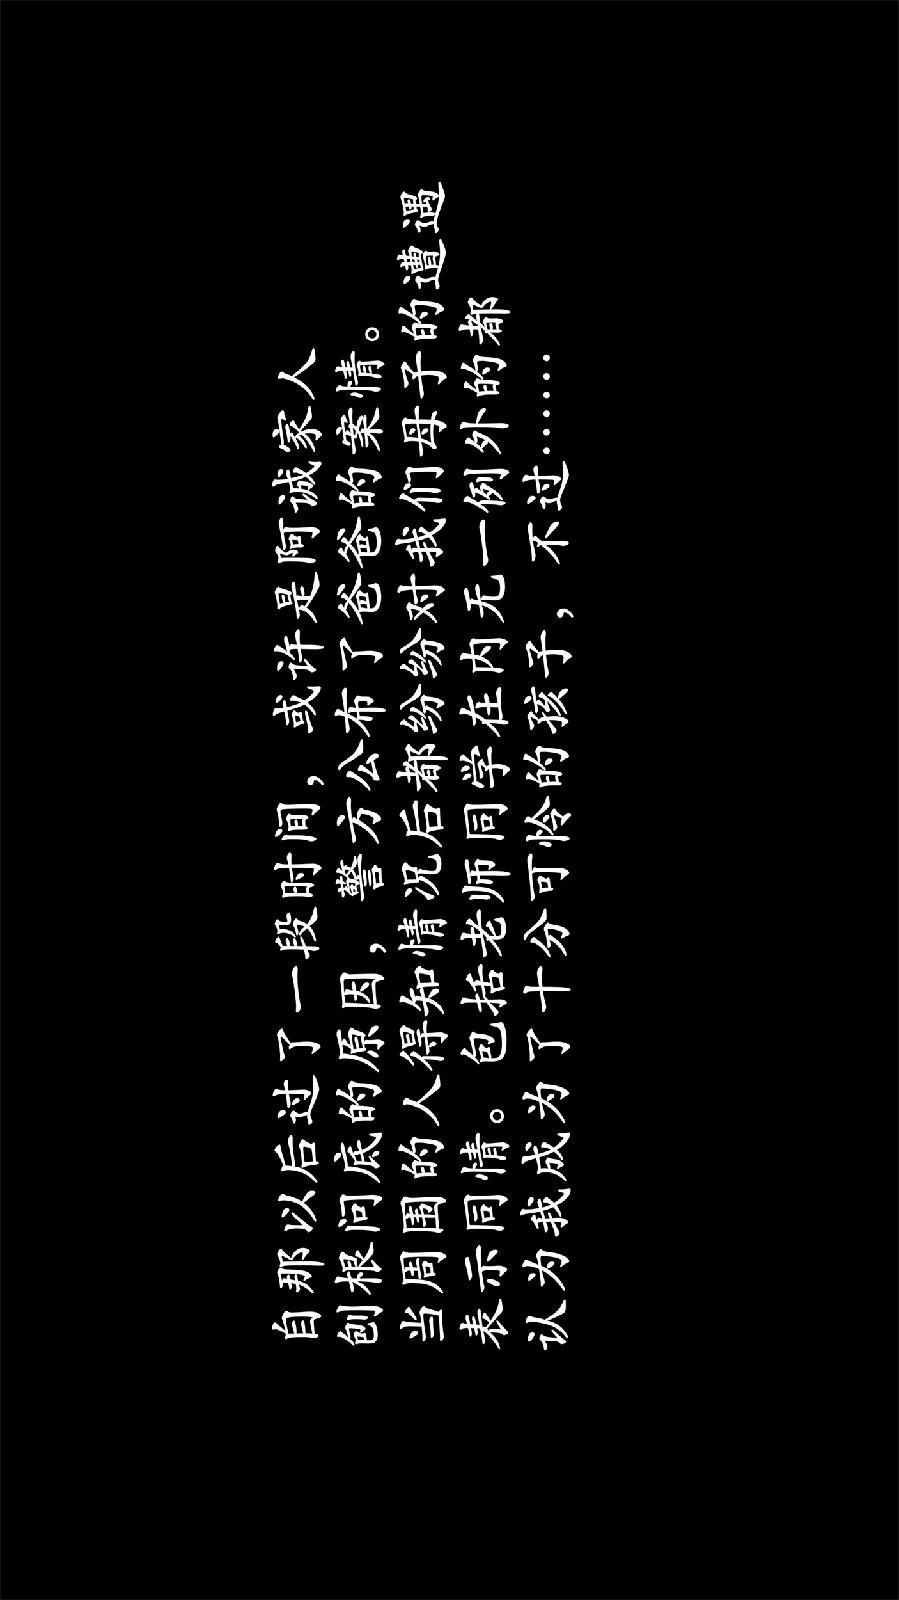 自那以后过了一段时间，或许是阿诚家人
刨根问底的原因，警方公布了爸爸的案情。
当周围的人得知情况后都纷纷对我们母子的遭遇
表示同情。包括老师同学在内无一例外的都
认为我成为了十分可怜的孩子，不过……